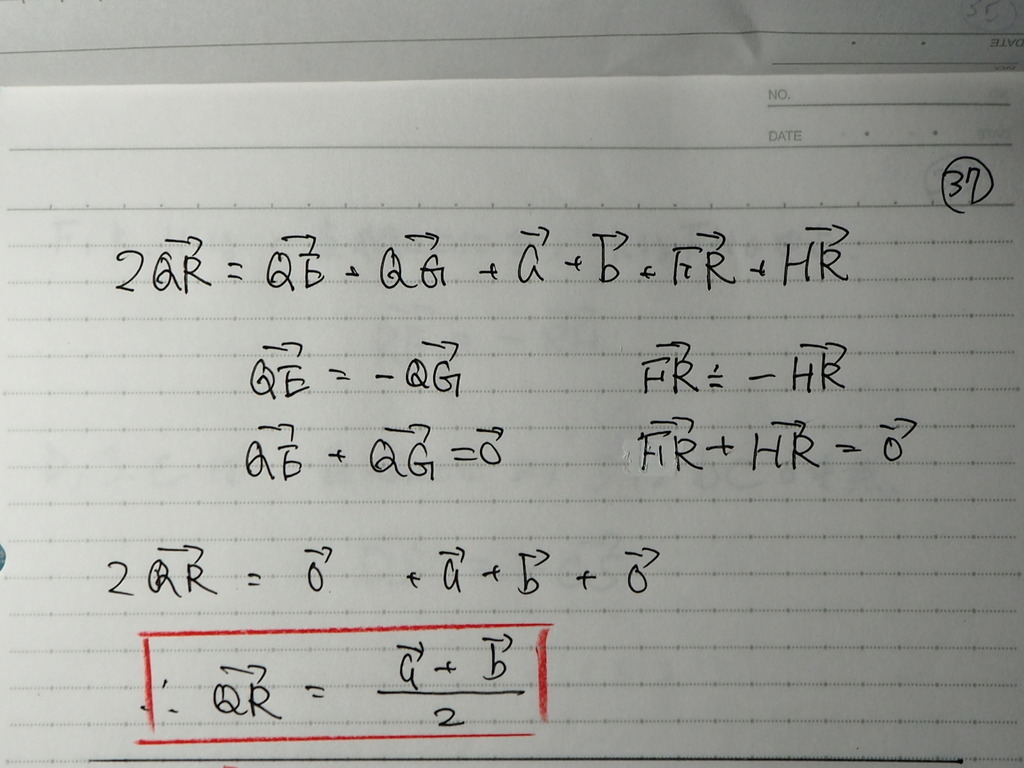 NO.
DATE
37
2QR⃗ = QE⃗ + QG⃗ + a⃗ + b⃗ + FR⃗ + HR⃗
QE⃗ = -QG⃗ FR⃗ = -HR⃗
QE⃗ + QG⃗ = 0⃗ FR⃗ + HR⃗ = 0⃗
2QR⃗ = 0⃗ + a⃗ + b⃗ + 0⃗
∴ QR⃗ = (a⃗ + b⃗) / 2